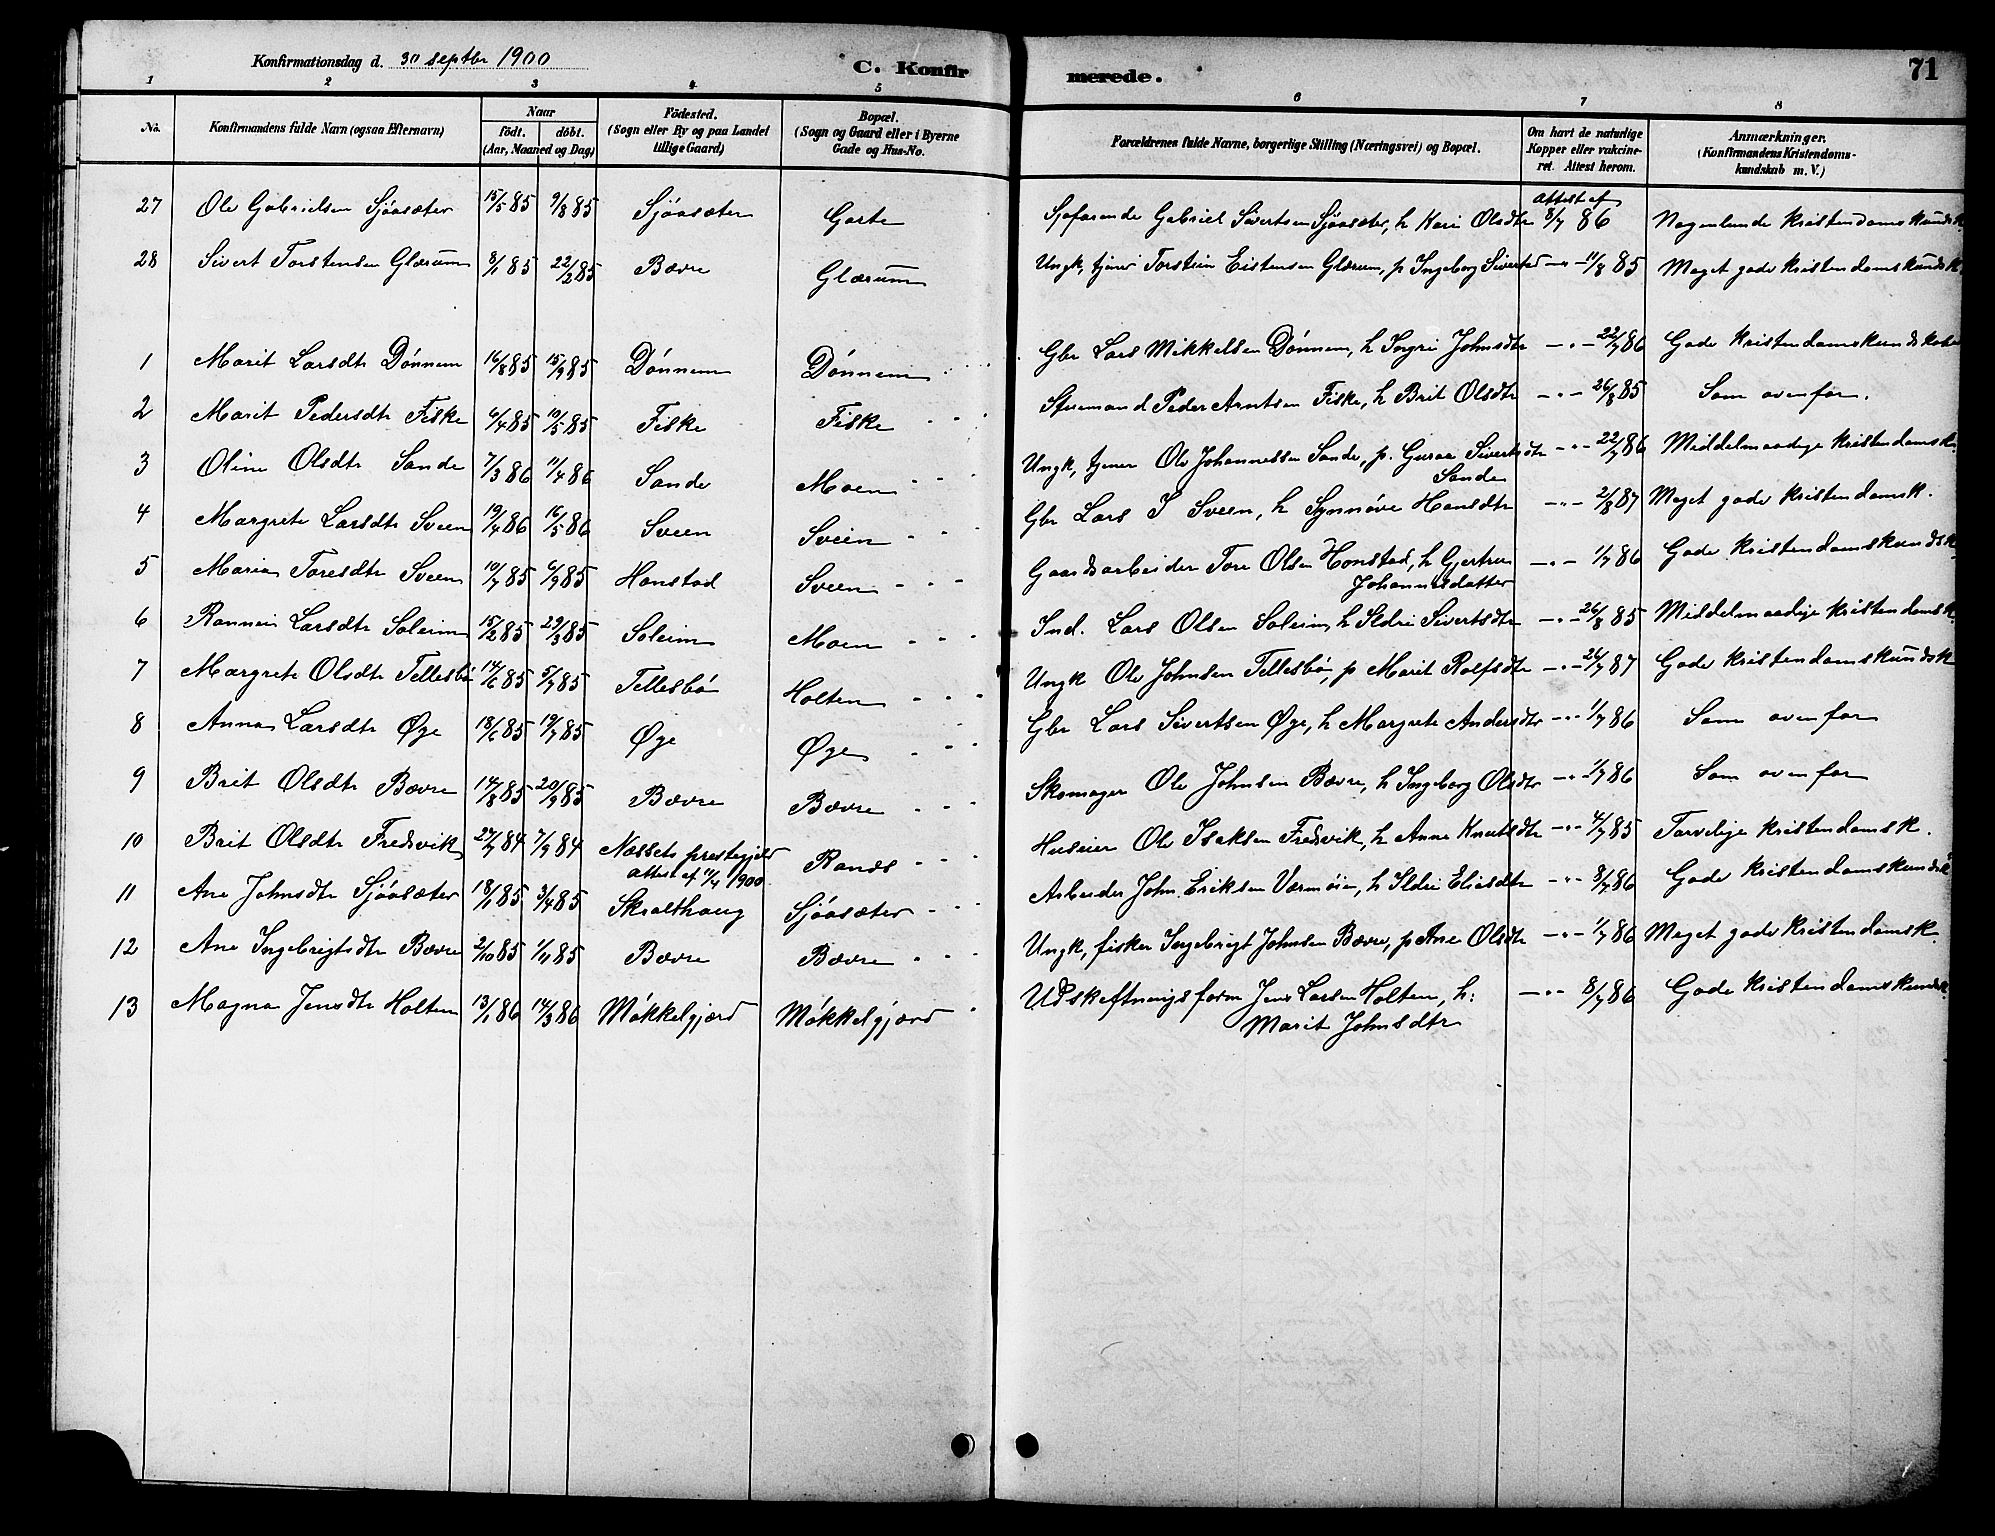 Konfirmationsdag d. 30 septbr 1900 C. Konfirmerede. 71
1 2 3 4 5 6 7 8
No. Konfirmandens fulde Navn (ogsaa Efternavn) Naar födt. döbt. (Aar, Maaned og Dag) Födested. (Sogn eller By og paa Landet tillige Gaard) Bopæl. (Sogn og Gaard eller i Byerne Gade og Hus-No. Forældrenes fulde Navne, borgerlige Stilling (Næringsvei) og Bopæl. Om havt de naturlige Kopper eller vakcineret. Attest herom. Anmærkninger. (Konfirmandens Kristendomskundskab m. V.)
27 Ole Gabrielsen Sjöasæter 15/5 85 9/8 85 Sjöasæter Garte Sjöfarende Gabriel Sivertsen Sjöasæter, h Kari Olsdtr attest af 8/7 86 Nogenlunde kristendomskundsk
28 Sivert Torstensen Glærum 8/1 85 22/2 85 Bævre Glærum Ungk, tjener Torstein Eistensen Glærum, p Ingeborg Sivertsd -"- 11/8 85 Meget gode kristendomskundsk
1 Marit Larsdtr Dönnem 16/8 85 15/9 85 Dönnem Dönnem Gbr Lars Mikkelsen Dönnem, h Sigri Johnsdtr -"- 22/7 86 Gode kristendomskundskaber
2 Marit Pedersdtr Fiske 6/4 85 10/5 85 Fiske Fiske Styrmand Peder Arntsen Fiske, h Brit Olsdtr -"- 26/8 85 Som ovenfor.
3 Oline Olsdtr Sande 7/3 86 11/4 86 Sande Moen Ungk, tjener Ole Johannessen Sande, p. Guroe Sivertsdtr Sande -"- 22/7 86 Middelmaadige kristendomsk.
4 Margrete Larsdtr Sveen 19/4 86 16/5 86 Sveen Sveen Gbr Lars I Sveen, h Synnöve Hansdtr -"- 2/8 87 Meget gode kristendomsk.
5 Maria Toresdtr Sveen 10/7 85 6/9 85 Honstad Sveen Gaardsarbeider Tore Olsen Honstad, h Gjertrun Johannesdatter -"- 1/7 86 Gode kristendomskundsk
6 Rannei Larsdtr Soleim 15/2 85 29/3 85 Soleim Moen Ind. Lars Olsen Soleim, h Ildri Sivertsdtr -"- 26/8 85 Middelmaadige kristendomsk
7 Margrete Olsdtr Tellesbö 14/6 85 5/7 85 Tellesbö Holten Ungk Ole Johnsen Tellesbö, p Marit Rolfsdtr -"- 26/7 87 Gode kristendomskundsk
8 Anna Larsdtr Øye 18/6 85 19/7 85 Øye Øye Gbr Lars Sivertsen Øye, h Margrete Andersdtr -"- 1/7 86 Som ovenfor
9 Brit Olsdtr Bævre 14/8 85 20/9 85 Bævre Bævre Skomager Ole Johnsen Bævre, h Ingeborg Olsdtr -"- 1/7 86 Som ovenfor
10 Brit Olsdtr Fredsvik 27/7 84 7/9 84 Næssets prestegjeld attest af 11/4 1900 Ranes Huseier Ole Isaksen Fredsvik, h Anne Knutsdtr -"- 4/7 85 Tarvelige kristendomsk.
11 Ane Johnsdtr Sjöasæter 18/1 85 3/4 85 Skralthaug Sjöasæter Arbeider John Eriksen Værmöien, h Ildri Eliasdtr -"- 8/7 86 Gode kristendomskundsk
12 Ane Ingebrigtsdtr Bævre 2/10 85 1/11 85 Bævre Bævre Ungk, fisker Ingebrigt Johnsen Bævre, p Ane Olsdtr -"- 1/7 86 Meget gode kristendomsk.
13 Magna Jensdtr Holten 13/1 86 14/3 86 Mökkelgjærd Mökkelgjærd Udskiftningsform Jens Larsen Holten, h: Marit Johnsdtr -"- 8/7 86 Gode kristendomskundsk.